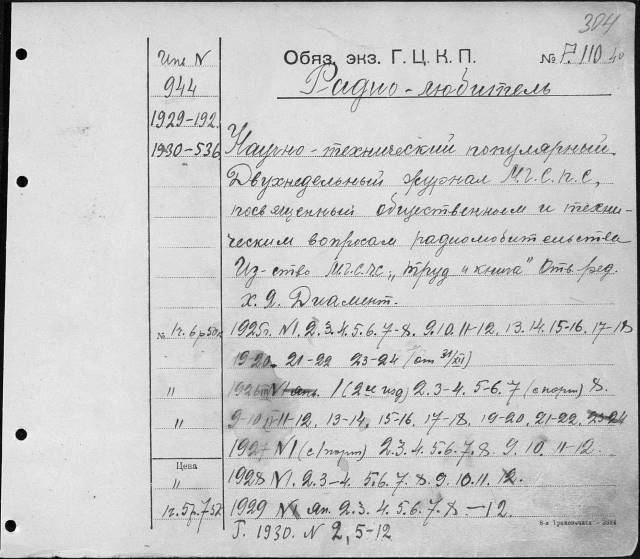 304
Обяз. экз. Г. Ц. К. П. № Р. 110 40
Инв N
944
Радио-любитель
1929-192.
1930-536
Научно-технический популярный
Двухнедельный журнал М.Г.С.П.С.,
посвященный общественным и техни-
ческим вопросам радиолюбительства
Из-ство М.Г.С.П.С. "Труд и книга" Отв. ред.
Х. Я. Диамент.
1925г. N1. 2. 3. 4. 5. 6. 7-8. 9. 10. 11-12. 13. 14. 15-16. 17-18
19-20. 21-22 23-24 (от 31/XII)
" 1926 1 (2ое изд) 2. 3-4. 5-6. 7 (с порт) 8.
9-10 11-12. 13-14. 15-16. 17-18. 19-20. 21-22. 23-24
1927 N1 (с/порт) 2. 3. 4. 5. 6. 7. 8. 9. 10. 11-12.
Цена
" 1928 N1. 2. 3-4. 5. 6. 7. 8. 9. 10. 11. 12.
1929 N1 ян. 2. 3. 4. 5. 6. 7. 8 -12.
Г. 1930. N 2, 5-12